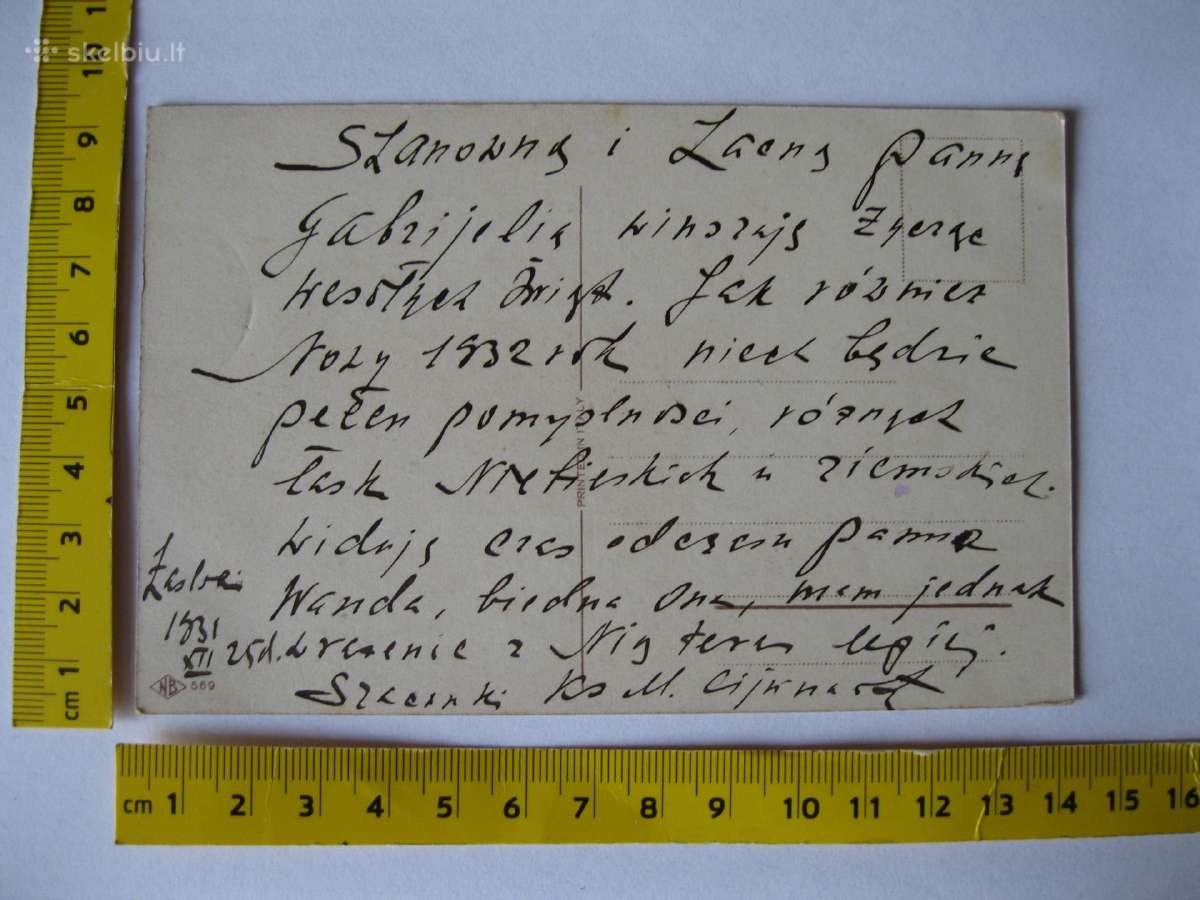 skelbiu.lt
Szanowną i Zacną Pannę
Gabrijelią winszują Życząc
wesołych Świąt. Jak również
Nowy 1932 rok niech będzie
pełen pomyslności, różnych
łask Niebieskich i ziemskich.
widują czas odczasu Panna
Wanda, biedna ona, mam jednak
wrażenie z Nią teraz lepiej.
Szacunki Ks M.
1931
XII 25d.
NB 569
PRINTED IN ITALY
cm 1 2 3 4 5 6 7 8 9 10 11 12 13 14 15 16
cm 1 2 3 4 5 6 7 8 9 10